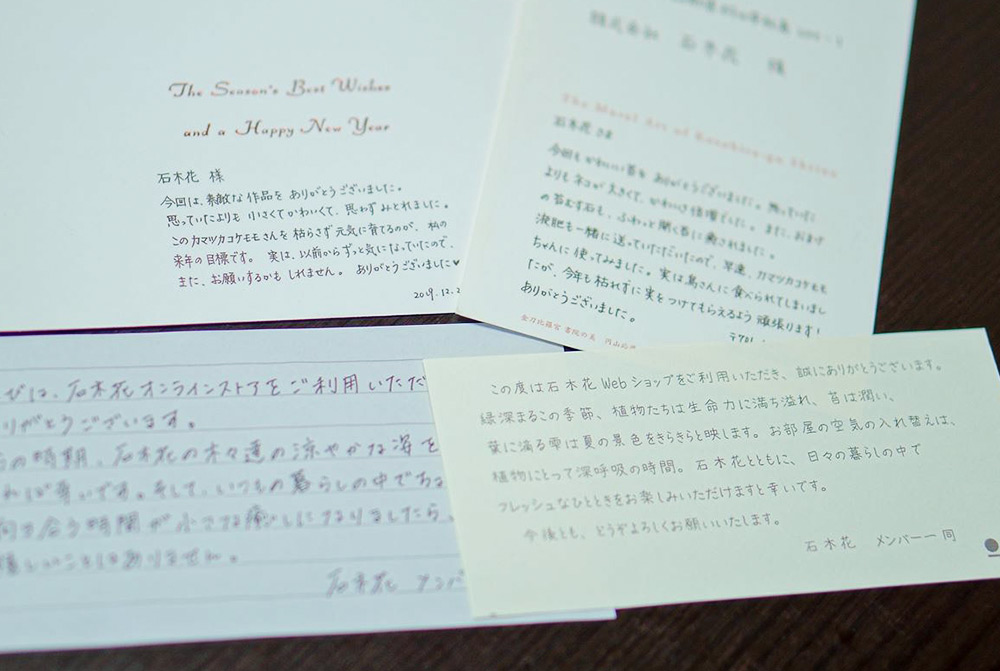 The Season's Best Wishes
and a Happy New Year
石木花 様
今回は、素敵な作品を ありがとうございました。
思っていたよりも 小さくてかわいくて、思わずみとれました。
このカマツカコケモモさんを 枯らさず元気に育てるのが、私の
来年の目標です。 実は、以前からずっと気になっていたので、
また、お願いするかも しれません。 ありがとうございました♥
2019.12.2
株式会社 石木花 様
石木花さま
今回もかわいい苔を ありがとうございました。思っていた
よりもネコが大きくて、かわいさ倍増でした。また、おまけ
の苔むす石も、ふわっと開く苔に癒されました。
液肥も一緒に送っていただいたので、早速、カマツカコケモモ
ちゃんに使ってみました。実は鳥さんに食べられてしまいまし
たが、今年も枯れずに実をつけてもらえるよう頑張ります!
ありがとうございました。
金刀比羅宮 書院の美
びは、石木花オンラインストアをご利用いただ
りがとうございます。
の時期、石木花の木々達の涼やかな姿を
れば幸いです。そして、いつもの暮らしの中で
向き合う時間が小さな癒しになりましたら、
嬉しいことはありません。
石木花 メンバ
この度は石木花Webショップをご利用いただき、誠にありがとうございます。
緑深まるこの季節、植物たちは生命力に満ち溢れ、苔は潤い、
葉に滴る雫は夏の景色をきらきらと映します。お部屋の空気の入れ替えは、
植物にとって深呼吸の時間。石木花とともに、日々の暮らしの中で
フレッシュなひとときをお楽しみいただけますと幸いです。
今後とも、どうぞよろしくお願いいたします。
石木花 メンバー一同